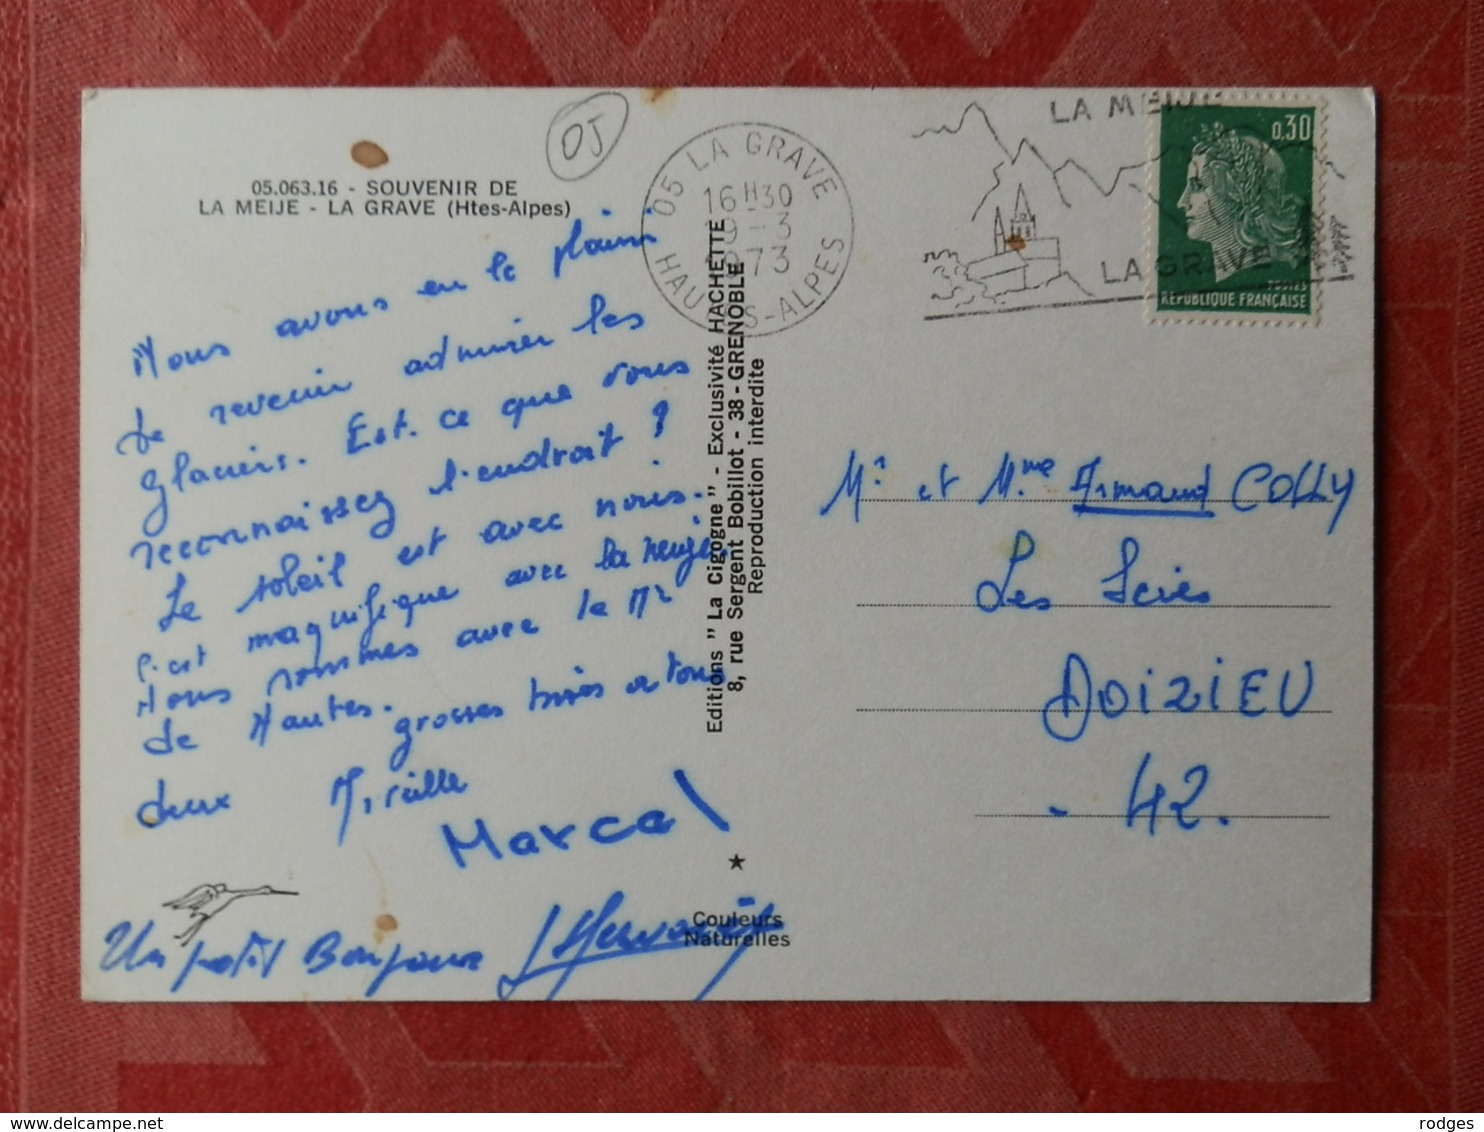 05.063.16 - SOUVENIR DE
LA MEIJE - LA GRAVE (Htes-Alpes)
05
05 LA GRAVE
16 H 30
9-3
1973
HAUTES-ALPES
LA MEIJE
LA GRAVE
0,30
POSTES
RÉPUBLIQUE FRANÇAISE
Nous avons eu le plaisir
de revenir admirer les
glaciers. Est-ce que vous
reconnaissez l'endroit ?
Le soleil est avec nous.
C'est magnifique avec la neige.
Nous sommes avec le Mr
de Nantes.
grosses bises à tous
deux Mireille
Marcel
Un petit Bonjour
Editions " La Cigogne " - Exclusivité HACHETTE
8, rue Sergent Bobillot - 38 - GRENOBLE
Reproduction interdite
★
Couleurs
Naturelles
Mr et Mme Armand COLLY
Les Scies
DOIZIEU
- 42.
rodges
delcampe.net